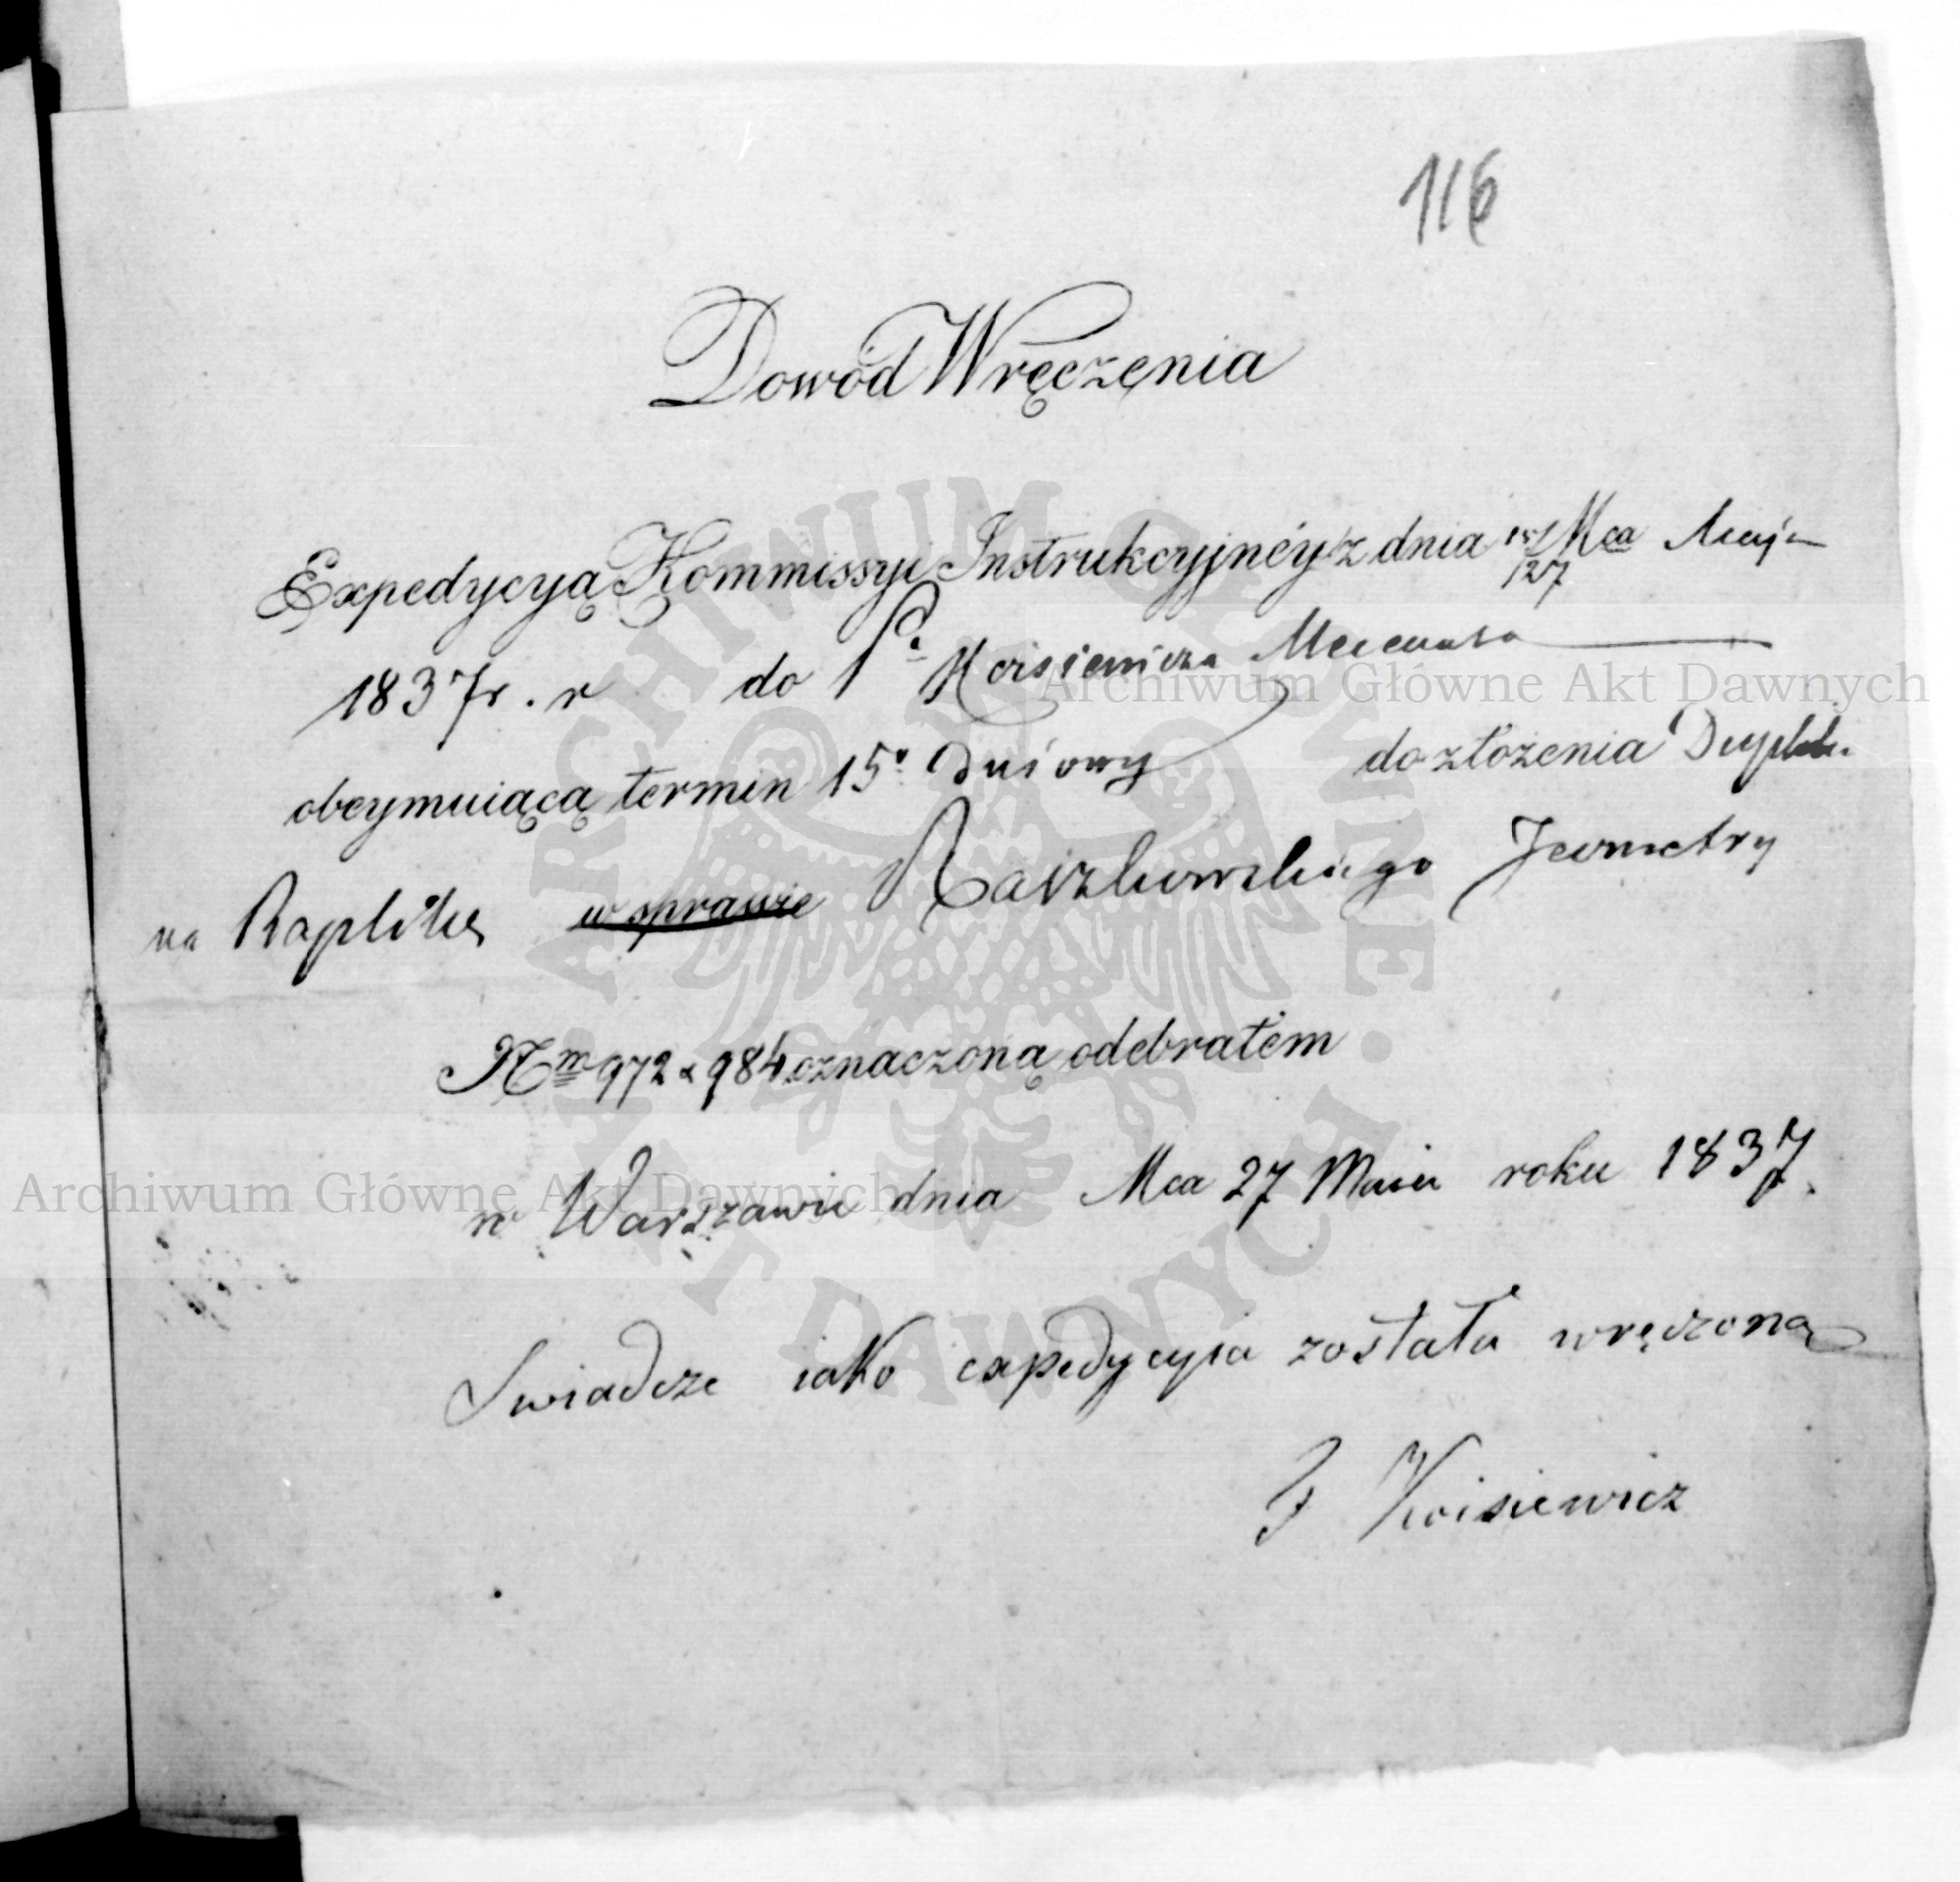 116
Dowód Wręczenia
Expedycyą Kommissyi Instrukcyjnéy z dnia 15/27 Mca Maja
1837 r. r do Pa Koisiewicza Mecenasa
obeymuiącą termin 15o Dniowy do złożenia Dupliki
na Replikę w sprawie Raszkowskiego Jeometry
Nrm 972 & 984 oznaczoną odebrałem
w Warszawie dnia Mca 27 Maia roku 1837.
Swiadcze iako expedycyia została wręczona
F Koisiewicz
ARCHIWUM GŁÓWNE AKT DAWNYCH
Archiwum Główne Akt Dawnych
Archiwum Główne Akt Dawnych